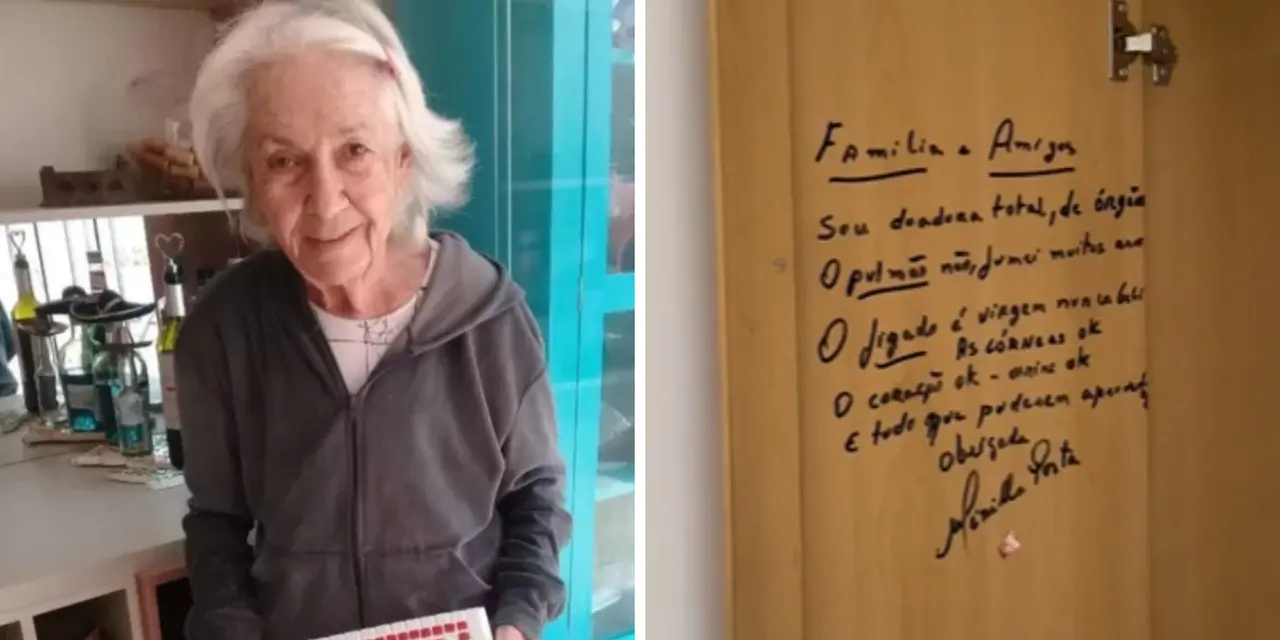 Familia e Amigos
Sou doadora total, de órgão
O pulmão não, fumei muitos
O figado é virgem nunca bebi
As córneas ok
O coração ok - ok
E tudo que puderem
obrigada
Porta